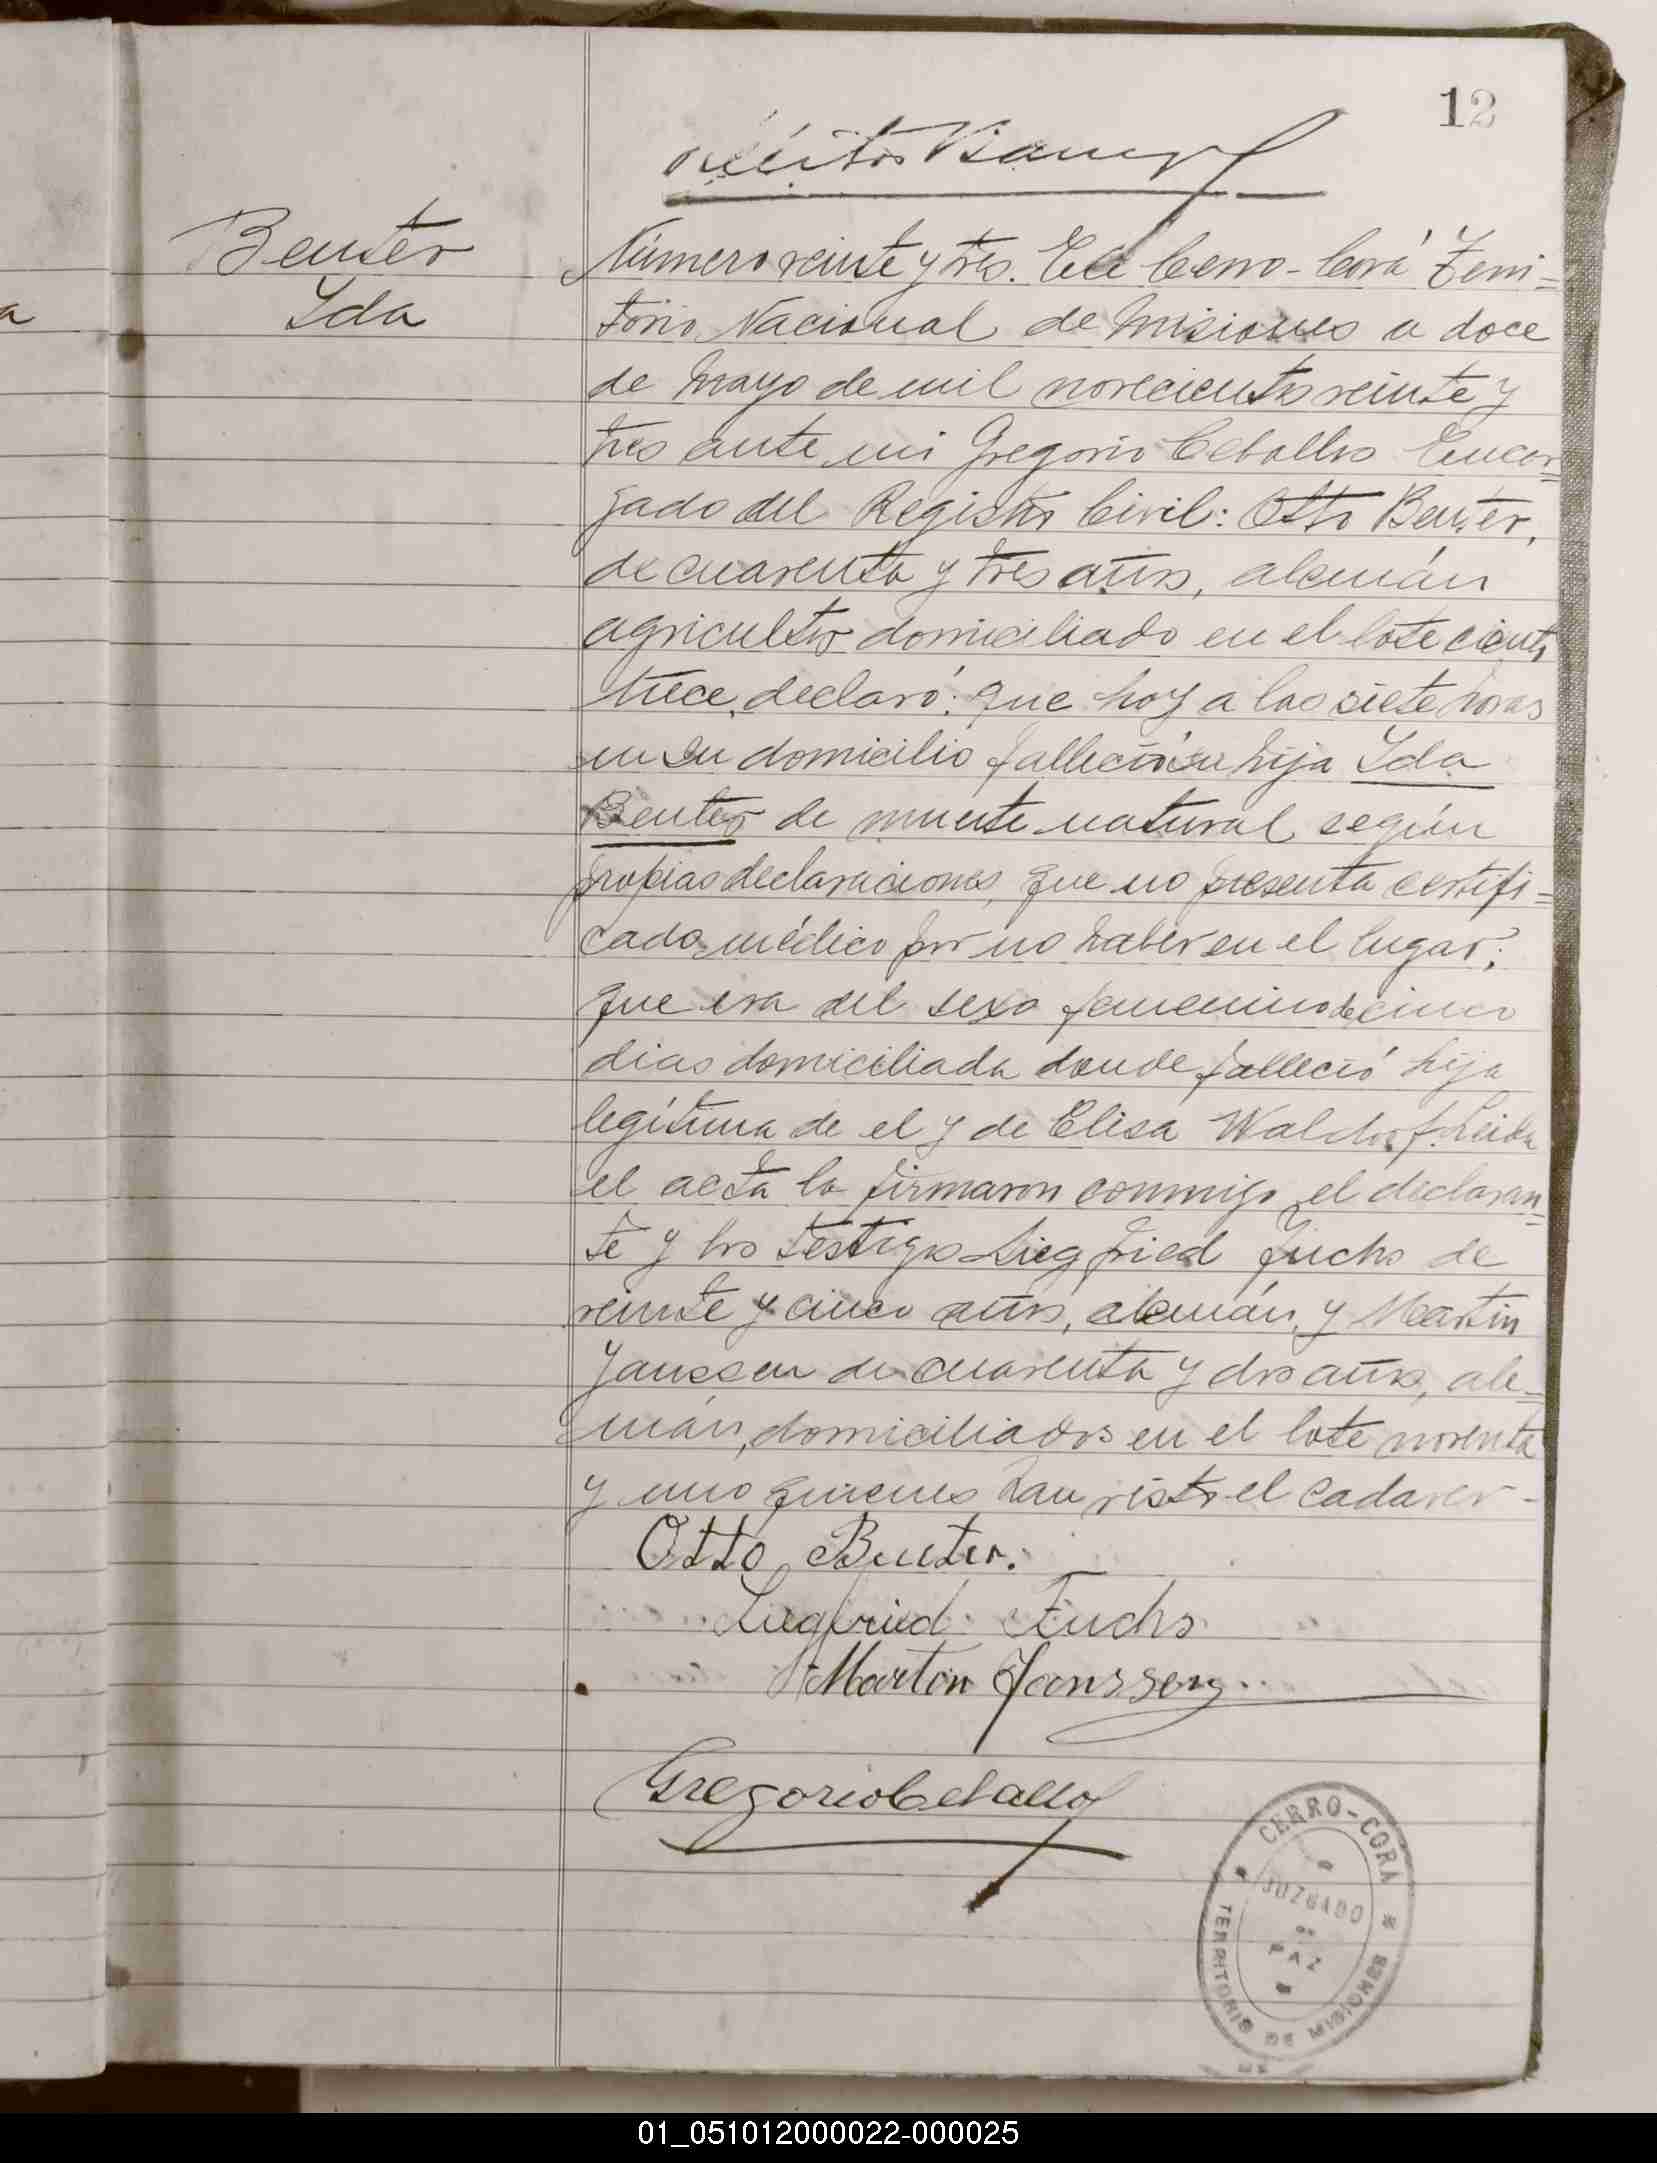 12
Beuter
Yda
Número veinte y tres. En Cerro-Corá Terri=
torio Nacional de Misiones a doce
de Mayo de mil novecientos veinte y
tres ante mi Gregorio Ceballos Encar=
gado del Registro Civil: Otto Beuter,
de cuarenta y tres años, alemán
agricultor domiciliado en el lote ciento
trece, declaró: que hoy a las siete horas
en su domicilio falleció su hija Yda
Beuter de muerte natural según
propias declaraciones, que no presenta certifi=
cado médico por no haber en el lugar;
que era del sexo femenino de cinco
dias domiciliada donde falleció hija
legítima de el y de Elisa Waldorf. Leida
el acta la firmaron conmigo el declaran=
te y los testigos Siegfried Fuchs de
veinte y cinco años, alemán, y Martin
Yanssen de cuarenta y dos años, ale=
mán, domiciliados en el lote noventa
y uno quienes han visto el cadaver-
Otto Beuter.
Siegfried Fuchs
Martin Janssen
Gregorio Ceballos
CERRO-CORA
JUZGADO
DE
PAZ
TERRITORIO DE MISIONES
01_051012000022-000025